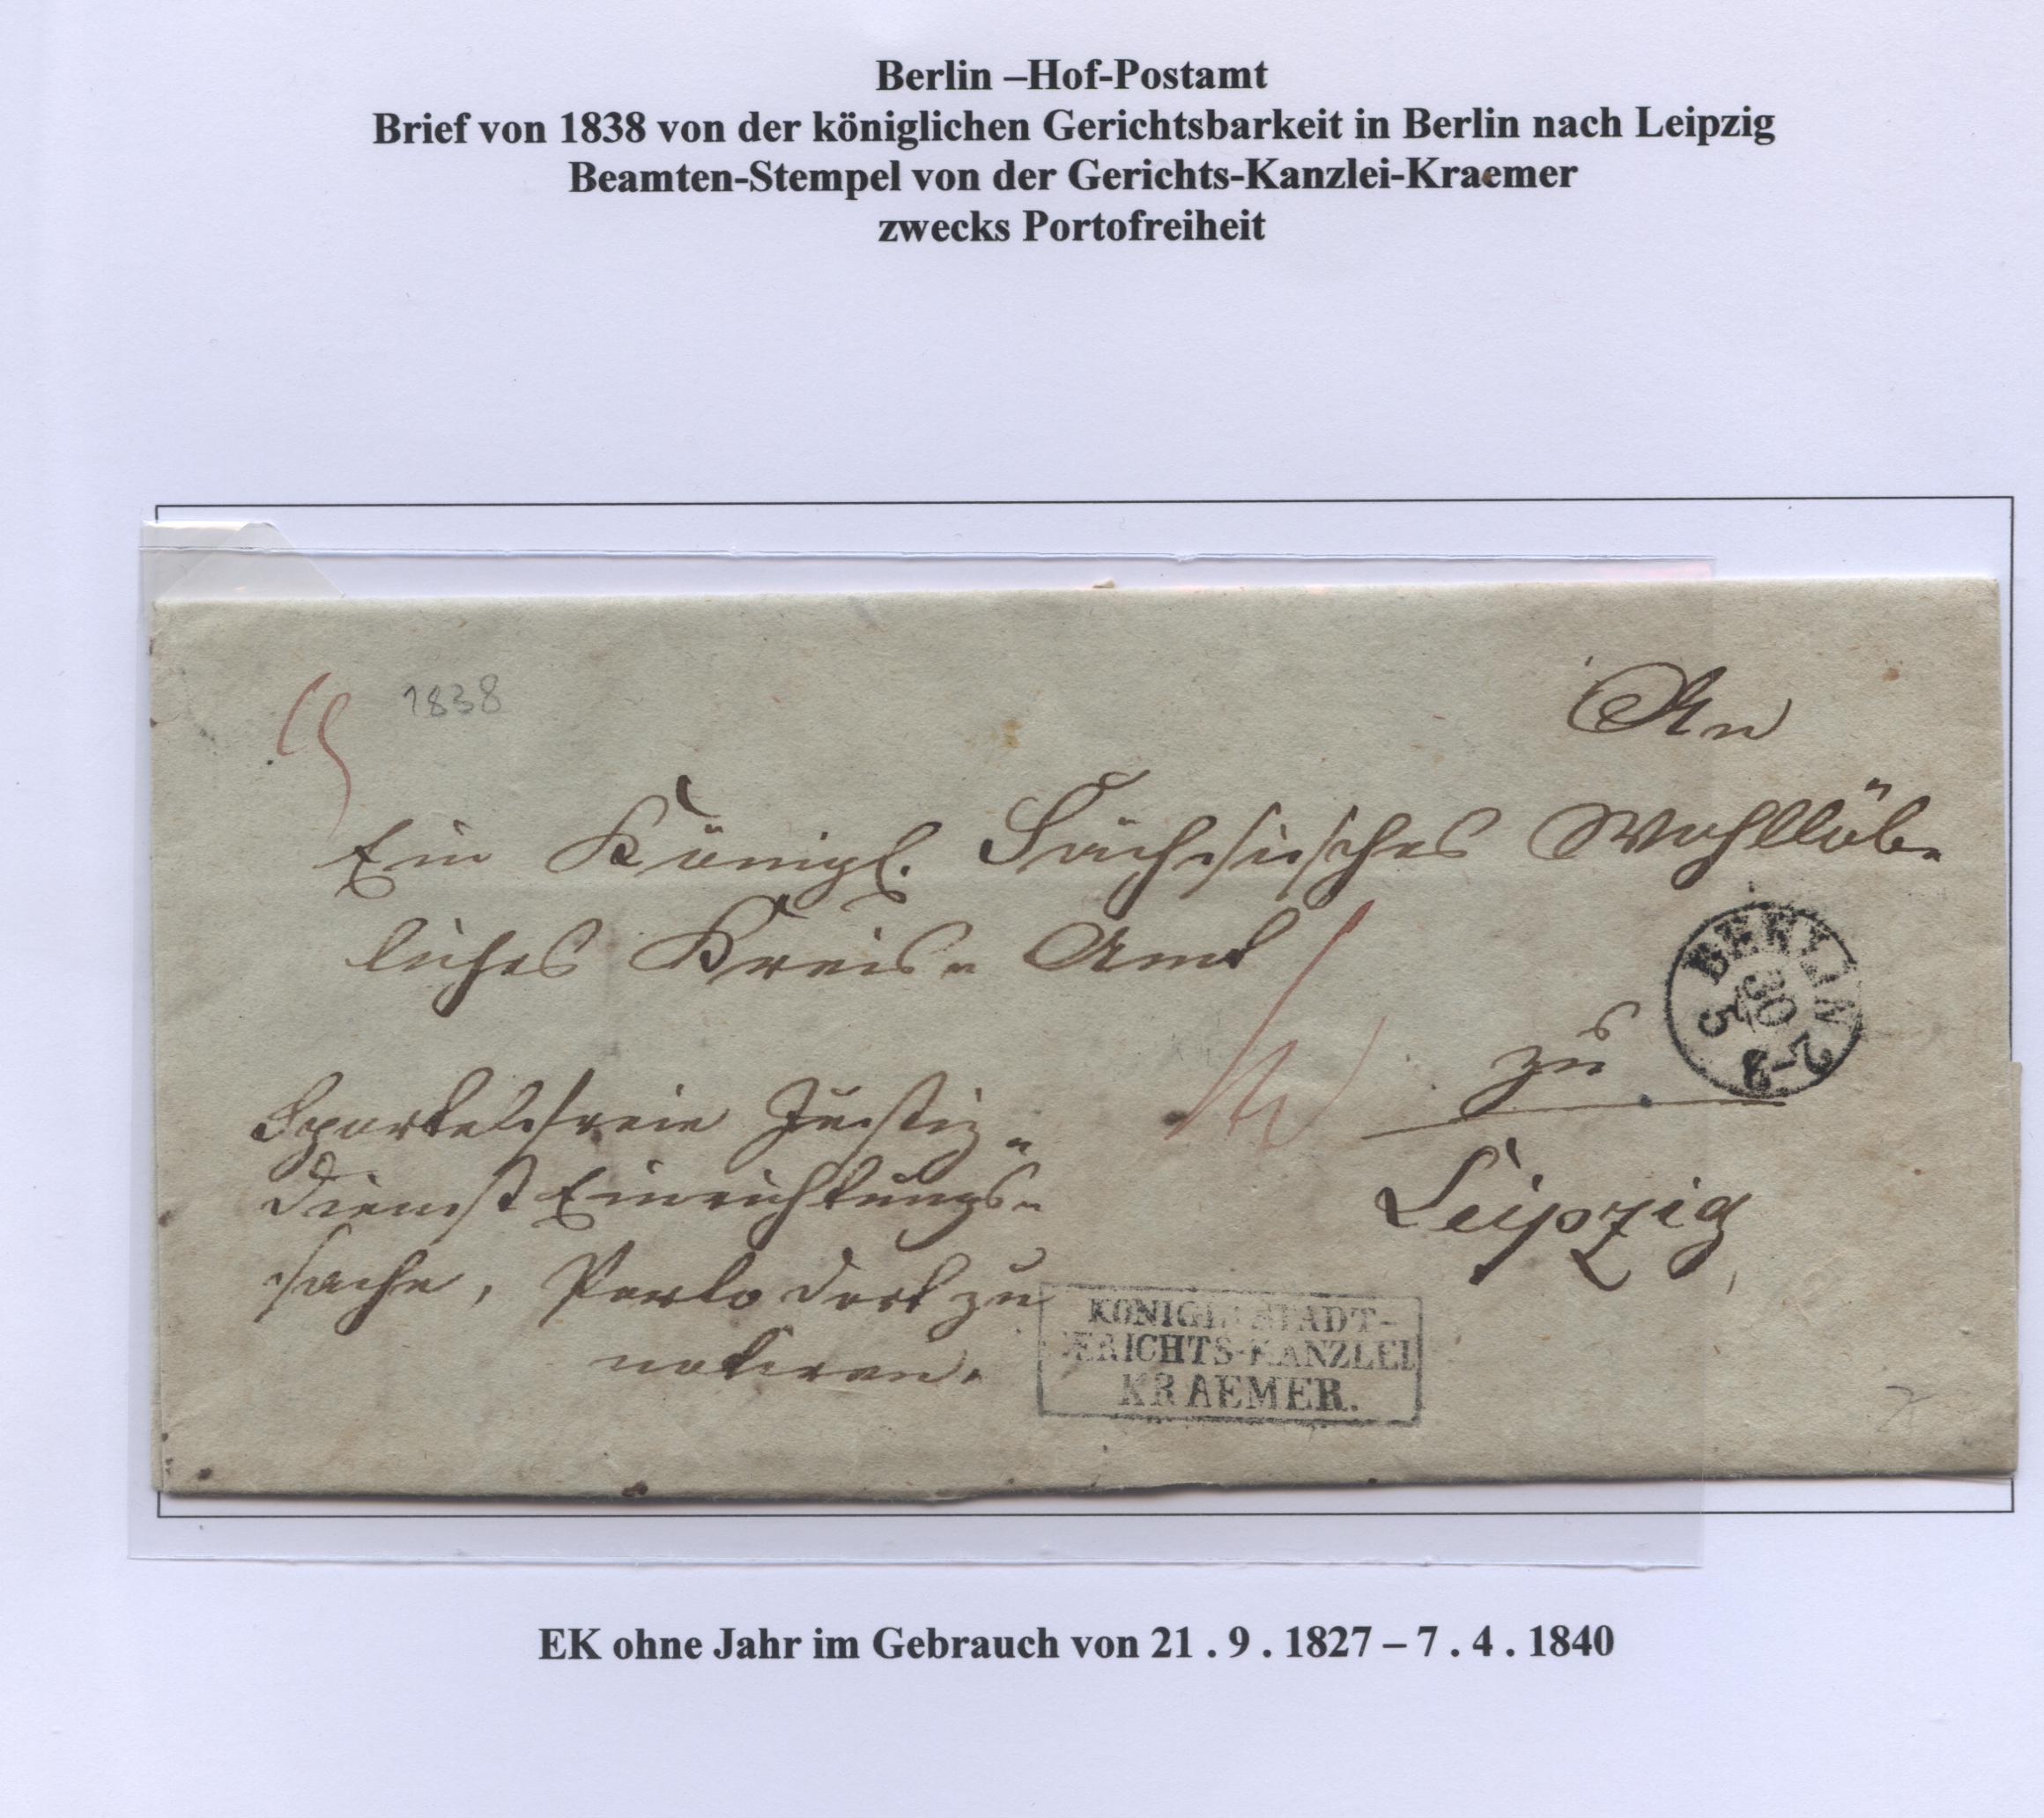 Berlin –Hof-Postamt
Brief von 1838 von der königlichen Gerichtsbarkeit in Berlin nach Leipzig
Beamten-Stempel von der Gerichts-Kanzlei-Kraemer
zwecks Portofreiheit
1838
An
Ein Königl. Sächsisches Wohllöb-
liches Kreis- Amt
BERLIN
30
5
zu
Leipzig
Sportelfreie Justiz-
Dienst Einrichtungs-
sache, Porto dort zu
notieren.
KÖNIGL. STADT-
GERICHTS-KANZLEI
KRAEMER.
EK ohne Jahr im Gebrauch von 21 . 9 . 1827 – 7 . 4 . 1840